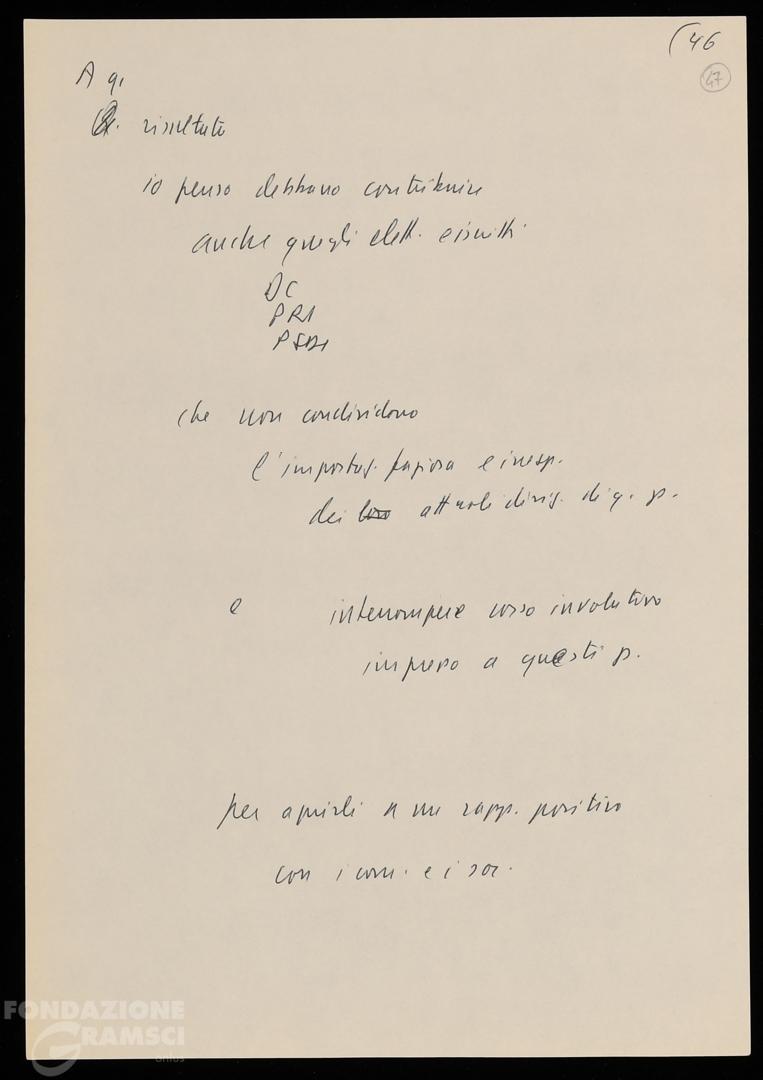 (46
47
A q.
risultato
io penso debbano contribuire
anche quegli elett. e iscritti
DC
PRI
PSDI
che non condividono
l'impostaz. faziosa e inesp.
dei loro attuali dirig. di q. p.
e interrompere corso involutivo
impresso a questi p.
per aprirli a un rapp. positivo
con i com. e i soc.
FONDAZIONE
GRAMSCI
onlus